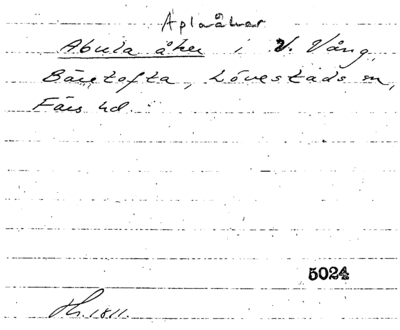 Aplaåker
Abula åker i V. Vång,
Bäretofta, Lövestads sn,
Färs hd.
5024
1811.